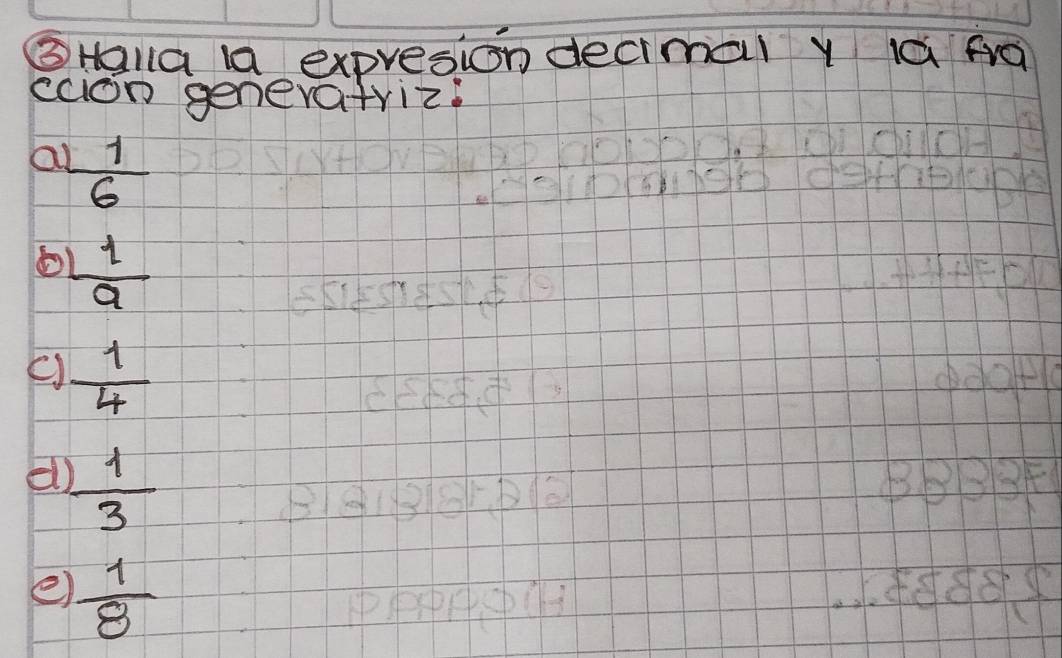 ③ Halla la expresión decimal y la fra
cción generatriz:
a) 1/6
b) 1/9
c) 1/4
d) 1/3
e) 1/8